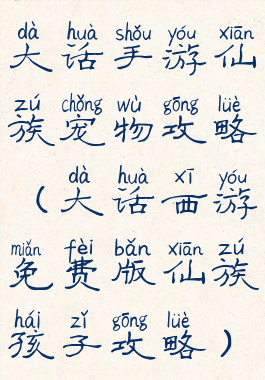 dà huà shǒu yóu xiān
大话手游仙
zú chǒng wù gōng lüè
族宠物攻略
dà huà xī yóu
（大话西游
miǎn fèi bǎn xiān zú
免费版仙族
hái zǐ gōng lüè
孩子攻略）